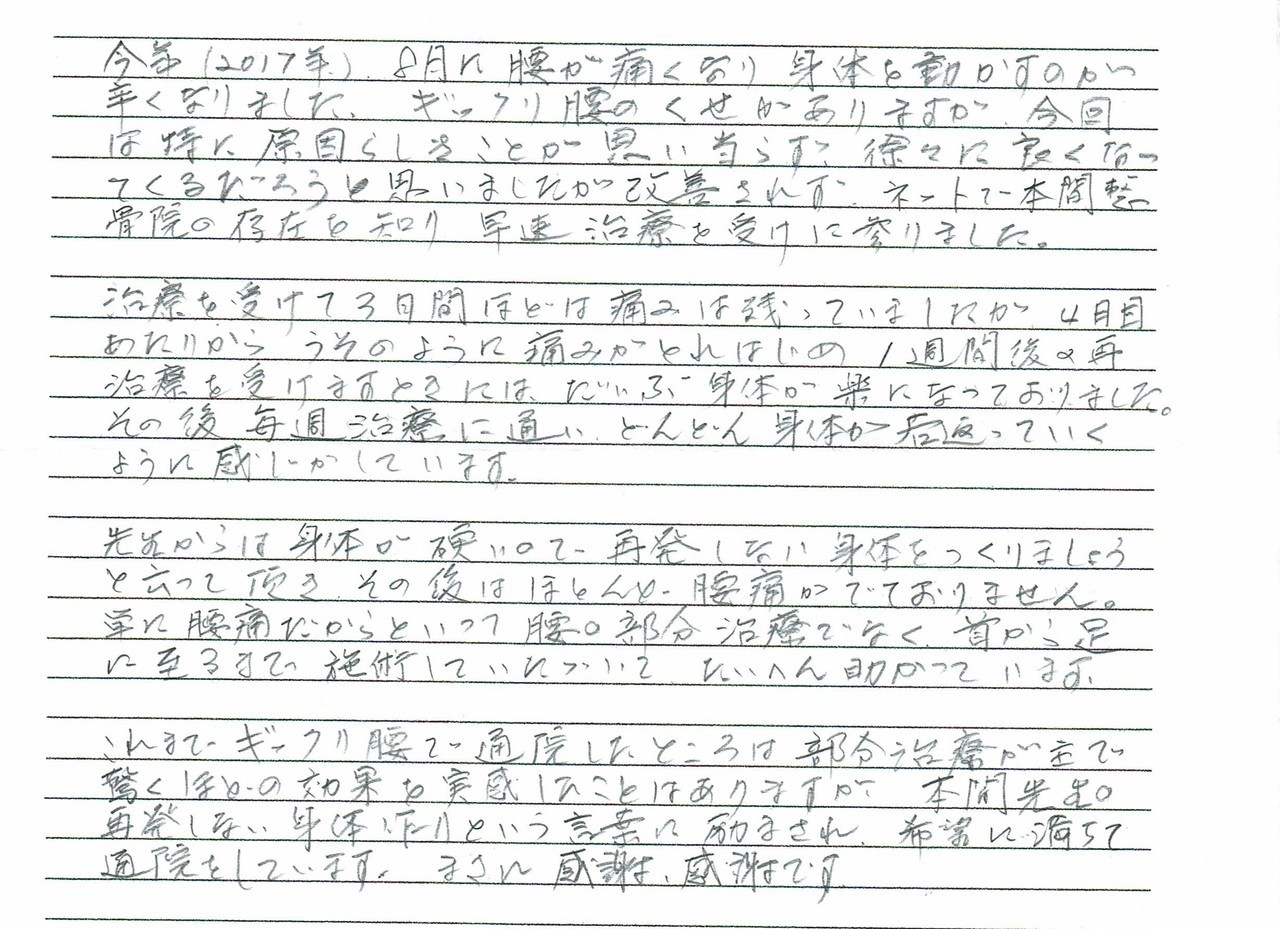 今年(2017年)、8月に腰が痛くなり身体を動かすのが
辛くなりました。ギックリ腰のくせがありますが、今回
は特に原因らしきことが思い当らず、徐々に良くなっ
てくるだろうと思いましたが改善されず、ネットで本間整
骨院の存在を知り早速治療を受けに参りました。
治療を受けて3日間ほどは痛みは残っていましたが、4日目
あたりから うそのように痛みがとれはじめ 1週間後の再
治療を受けますときには、だいぶ身体が楽になっておりました。
その後毎週治療に通い、どんどん身体が若返っていく
ように感じがしています。
先生からは身体が硬いので、再発しない身体をつくりましょう
と云って頂き、その後はほとんど腰痛がでておりません。
単に腰痛だからといって腰の部分治療でなく、首から足
に至るまで施術していただいて、たいへん助かっています。
これまでギックリ腰で通院したところは部分治療が主で
驚くほどの効果を実感したことはありますが 本間先生の
再発しない身体作りという言葉に励まされ、希望に満ちて
通院をしています。まさに感謝、感謝です